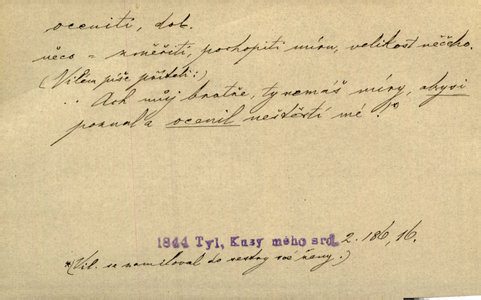 oceniti, dok.
něco = změřiti, pochopiti míru, velikost něčeho.
(Vilém píše příteli:)
.. Ach můj bratře, ty nemáš míry, abysi
poznal a ocenil neštěstí mé!
1844 Tyl, Kusy mého srd. 2. 186, 16.
*(Vil. se zamiloval do sestry své ženy.)